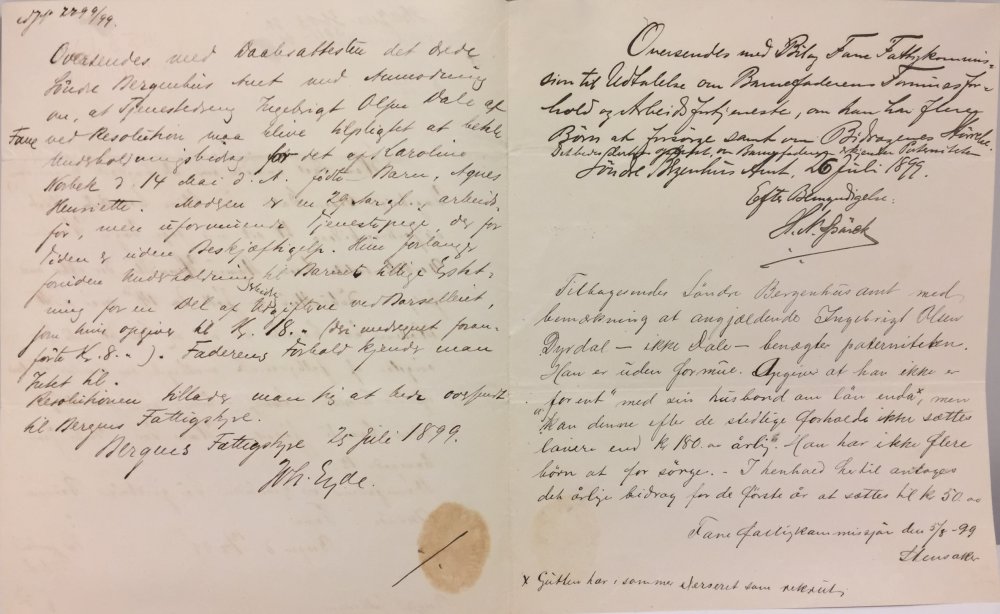 2299/99.
Oversendes med Daabsattesten det ærede
Söndre Bergenhus Amt med Anmodning
om, at Tjenestedreng Ingebrigt Olsen Dale af
Fane ved Resolution maa blive tilpligtet at betale
Underholdningsbidrag for det af Karoline
Norbek d. 14 Mai d. A. födte Barn, Agnes
Henriette. Moderen er en 29 Aar gl., arbeids-
før, men uformuende Tjenestepige, der for
Tiden er uden Beskjæftigelse. Hun forlanger
foruden Underholdning til Barnet tillige Erstat-
ning for en Del af Udgifterne ved Barselleiet,
som hun opgiver til Kr. 18. " (deri medregnet
Kr. 8. " ). Faderens Forhold kjender man
Intet til.
Resolutionen tillader man sig at bede oversendt
til Bergens Fattigstyre.
Bergens Fattigstyre 25 Juli 1899.
Wh. Eyde.
Oversendes med Bilag Fane Fattigkommis-
sion til Udtalelse om Barnefaderens Formuesfor-
hold og Arbeidsfortjeneste, om han har flere
Börn at forsörge samt om Bidragenes Störrelse.
Det bedes derhos om Barnefaderen erkjender Paterniteten
Söndre Bergenhus Amt, 26 Juli 1899.
Efter Bemyndigelse:
Tilbagesendes Söndre Bergenhus amt med
bemærkning at angjældende Ingebrigt Olsen
Dyrdal – ikke Dale – benægter paterniteten.
Han er uden formue. Opgiver at han ikke er
"forent" med sin husbond om lön endda, men
kan denne efter de stedlige forholde ikke sættes
lavere end kr 180.00 årlig. x Han har ikke flere
börn at for sörge. – I henhold hertil antages
det årlige bidrag for de förste år at sættes til kr 50.00
Fane Fattigkommissjon den 5/8 - 99
Stensaker
x Gutten har i sommer exerseret som rekrut.